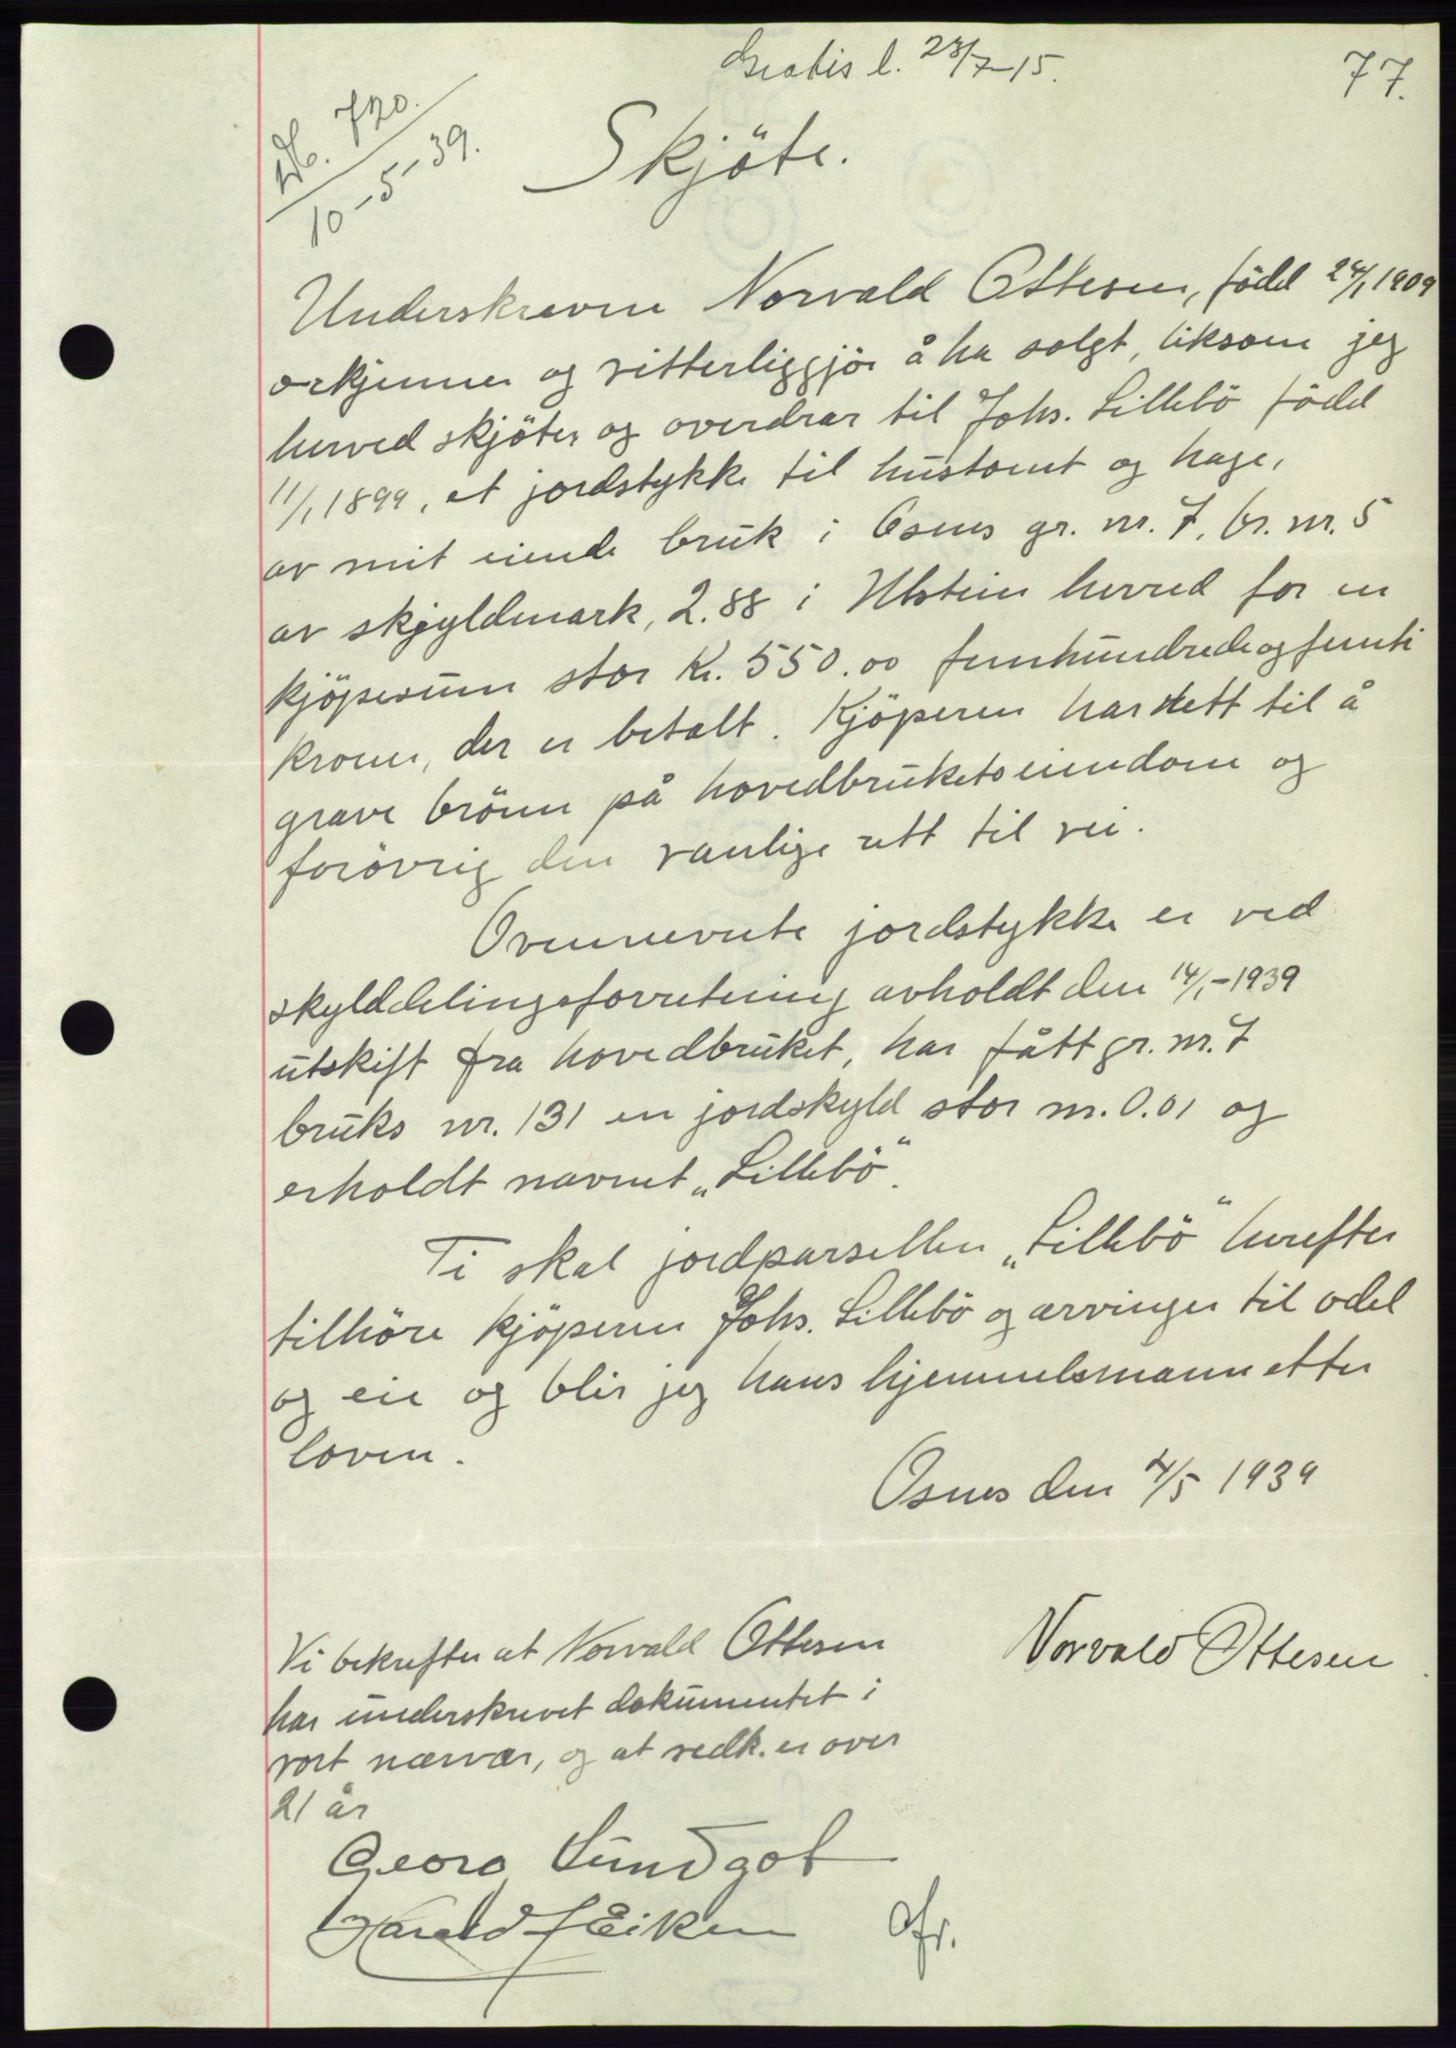 Gratis l. 23/7-15.
77.
Db. 720.
10-5-39.
Skjöte.
Underskrevne Norvald Ottesen, född 24/1 1909
erkjenner og vitterliggjör å ha solgt, liksom jeg
herved skjöter og overdrar til Johs. Lillebö född
11/1 1899, et jordstykke til hustomt og hage,
av mit eiende bruk i Osnes gr. nr. 7, br. nr. 5
av skjyldmark, 2.88 i Ulstein herred for en
kjöpesum stor Kr. 550.00 femhundredeogfemti
kroner, der er betalt. Kjöperen har rett til å
grave brönn på hovedbrukets eiendom og
forövrig den vanlige rett til vei.
Ovennevnte jordstykke er ved
skylddelingsforretning avholdt den 14/1-1939
utskift fra hovedbruket, har fått gr. nr. 7
bruks nr. 131 en jordskyld stor m. 0.01 og
erholdt navnet „Lillebö".
Ti skal jordparsellen „Lillebö" herefter
tilhöre kjöperen Johs. Lillebö og arvinger til odel
og eie og blir jeg hans hjemmelsmann etter
loven.
Osnes den 4/5 1939
Vi bekrefter at Norvald Ottesen
har underskrevet dokumentet i
vort nærvær, og at vedk. er over
21 år
Norvald Ottesen
Georg Sundgot
Harald J Eiken